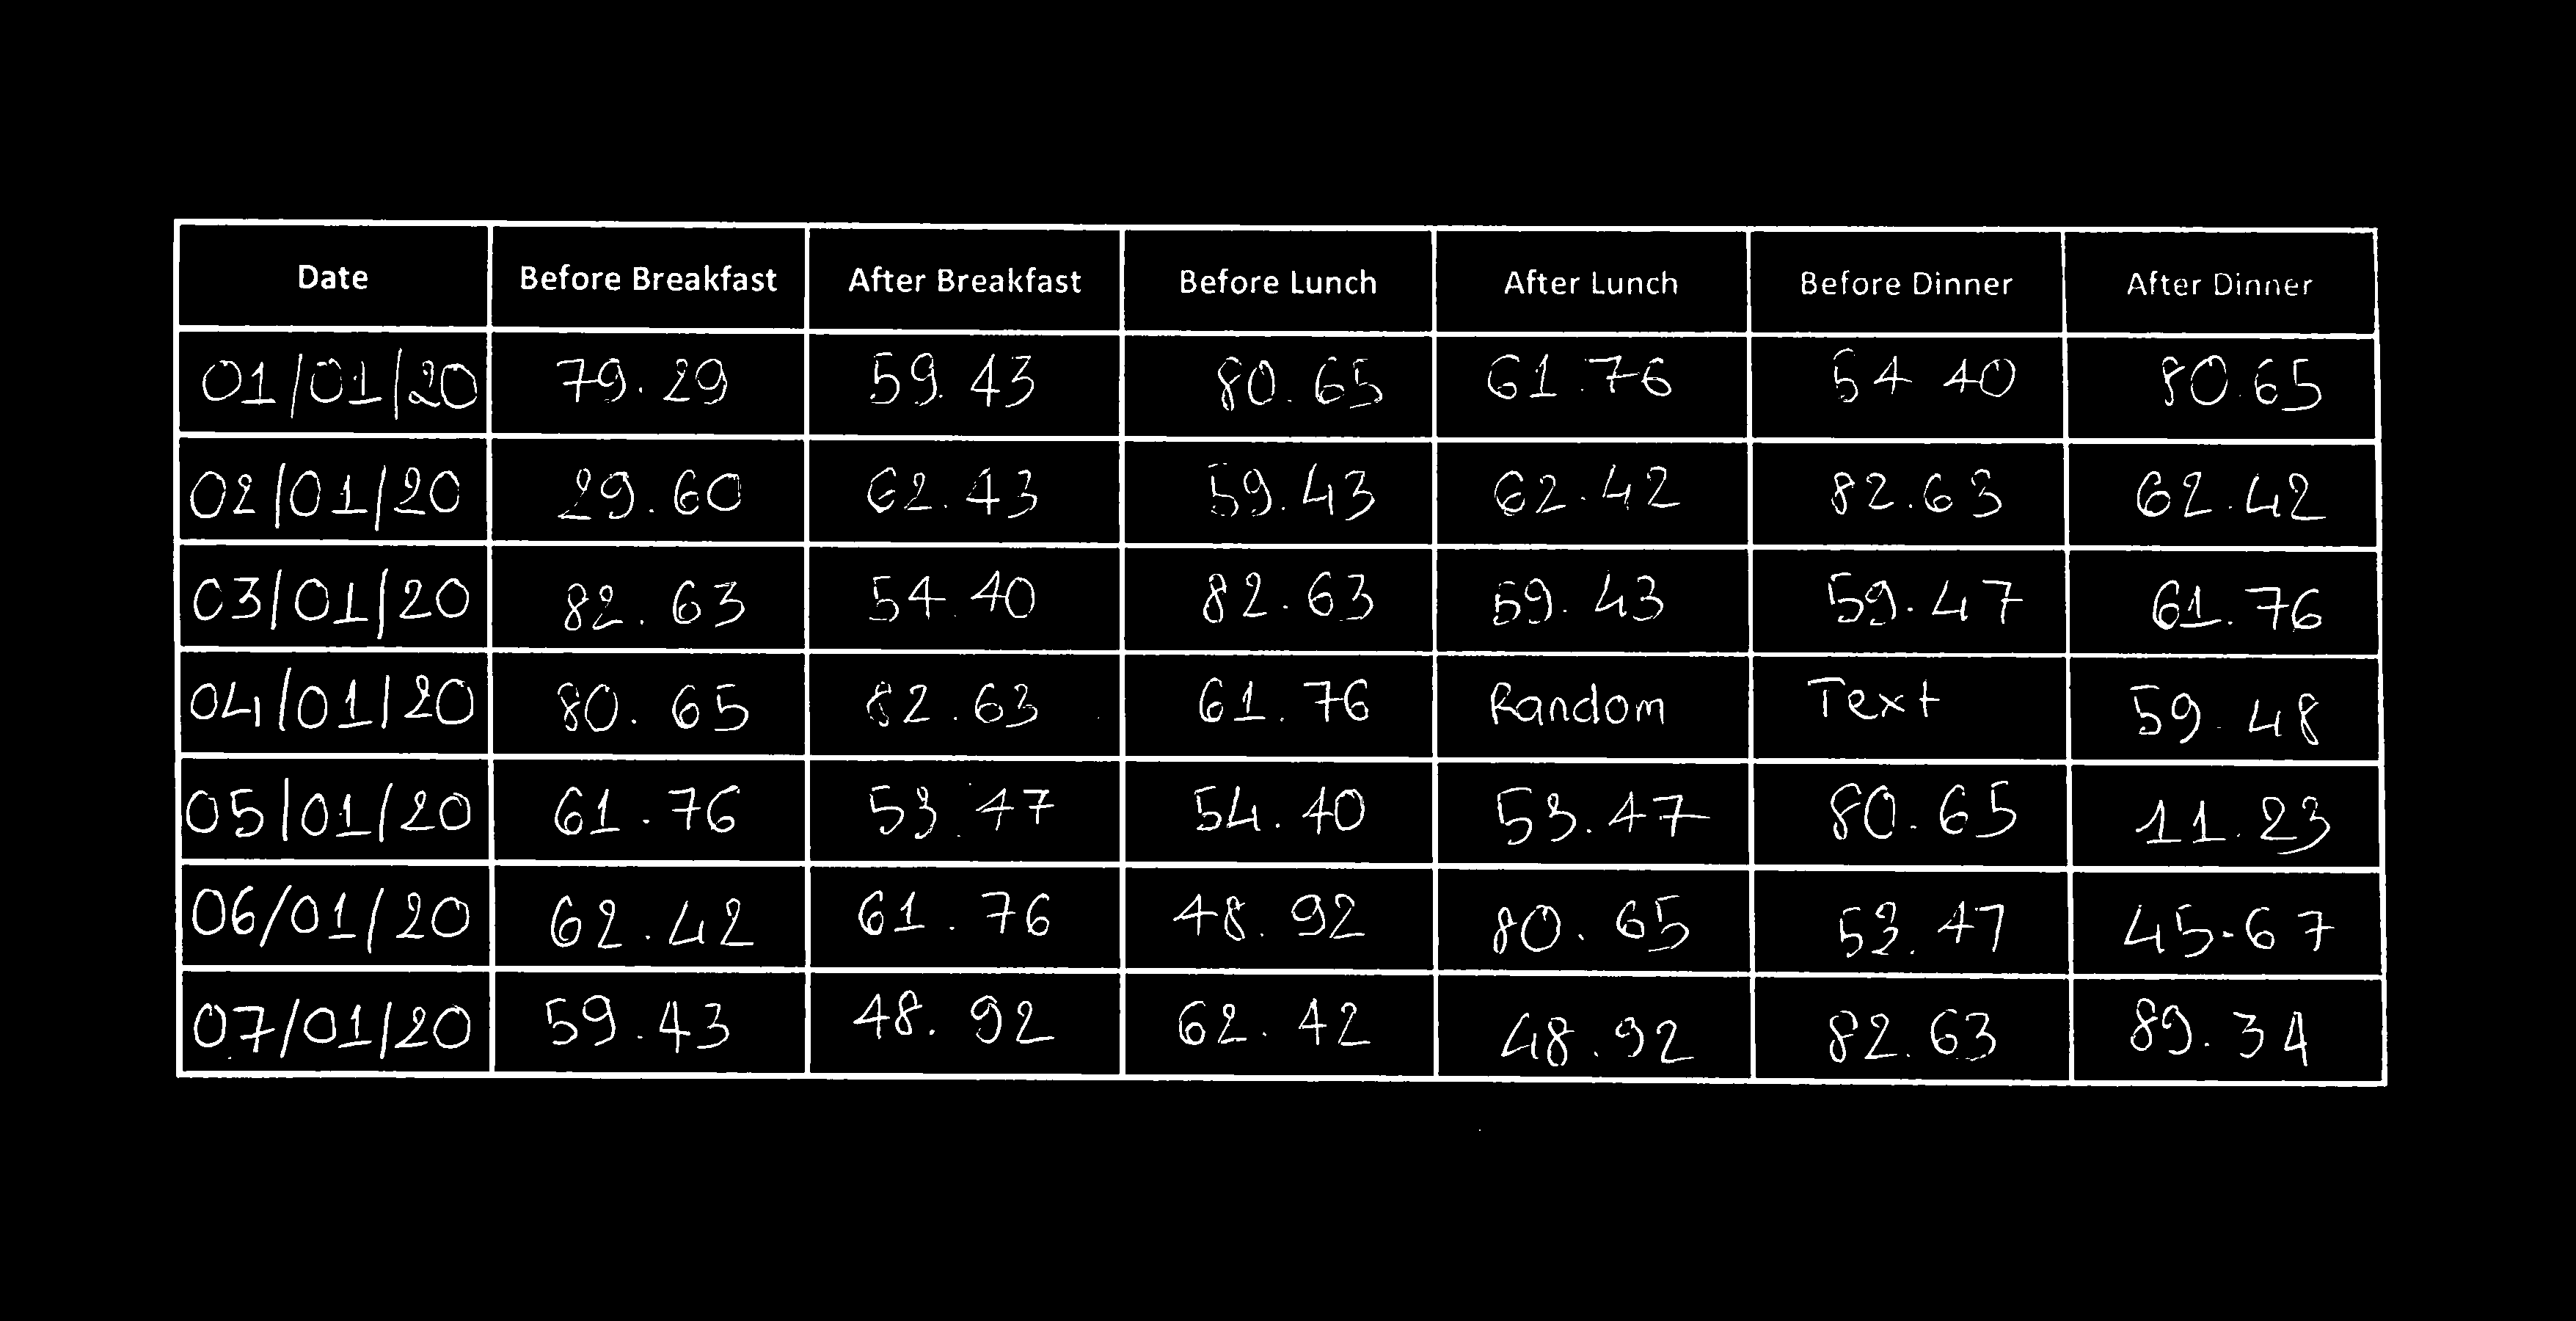 Date Before Breakfast After Breakfast Before Lunch After Lunch Before Dinner After Dinner
01/01/20 79.29 59.43 80.65 61.76 54 40 80.65
02/01/20 29.60 62.43 59.43 62.42 82.63 62.42
03/01/20 82.63 54.40 82.63 59.43 59.47 61.76
04/01/20 80.65 82.63 61.76 Random Text 59.48
05/01/20 61.76 53.47 54.40 53.47 80.65 11.23
06/01/20 62.42 61.76 48.92 80.65 53.47 45.67
07/01/20 59.43 48.92 62.42 48.92 82.63 89.34